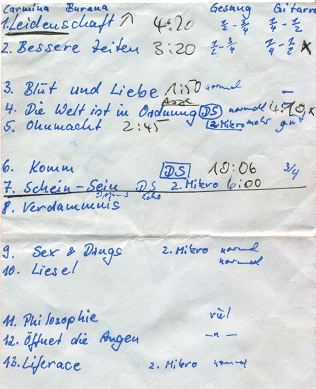 Carmina Burana Gesang Gitarre
1. Leidenschaft 4:20 2/4 - 3/4 3/4 - 1/2
2. Bessere Zeiten 3:20 1/2 - 3/4 2/4 - 1/2 x
3. Blut und Liebe 1:50 normal —
4. Die Welt ist in Ordnung DS normal
5. Ohnmacht 2:45 2. Mikro mehr
6. Komm DS 10:06 3/4
7. Schein-Sein DS 2. Mikro 6:00
Echo
8. Verdammnis
9. Sex & Drugs 2. Mikro normal
10. Liesel normal
11. Philosophie
12. Öffnet die Augen — " —
13. Liferace 2. Mikro normal